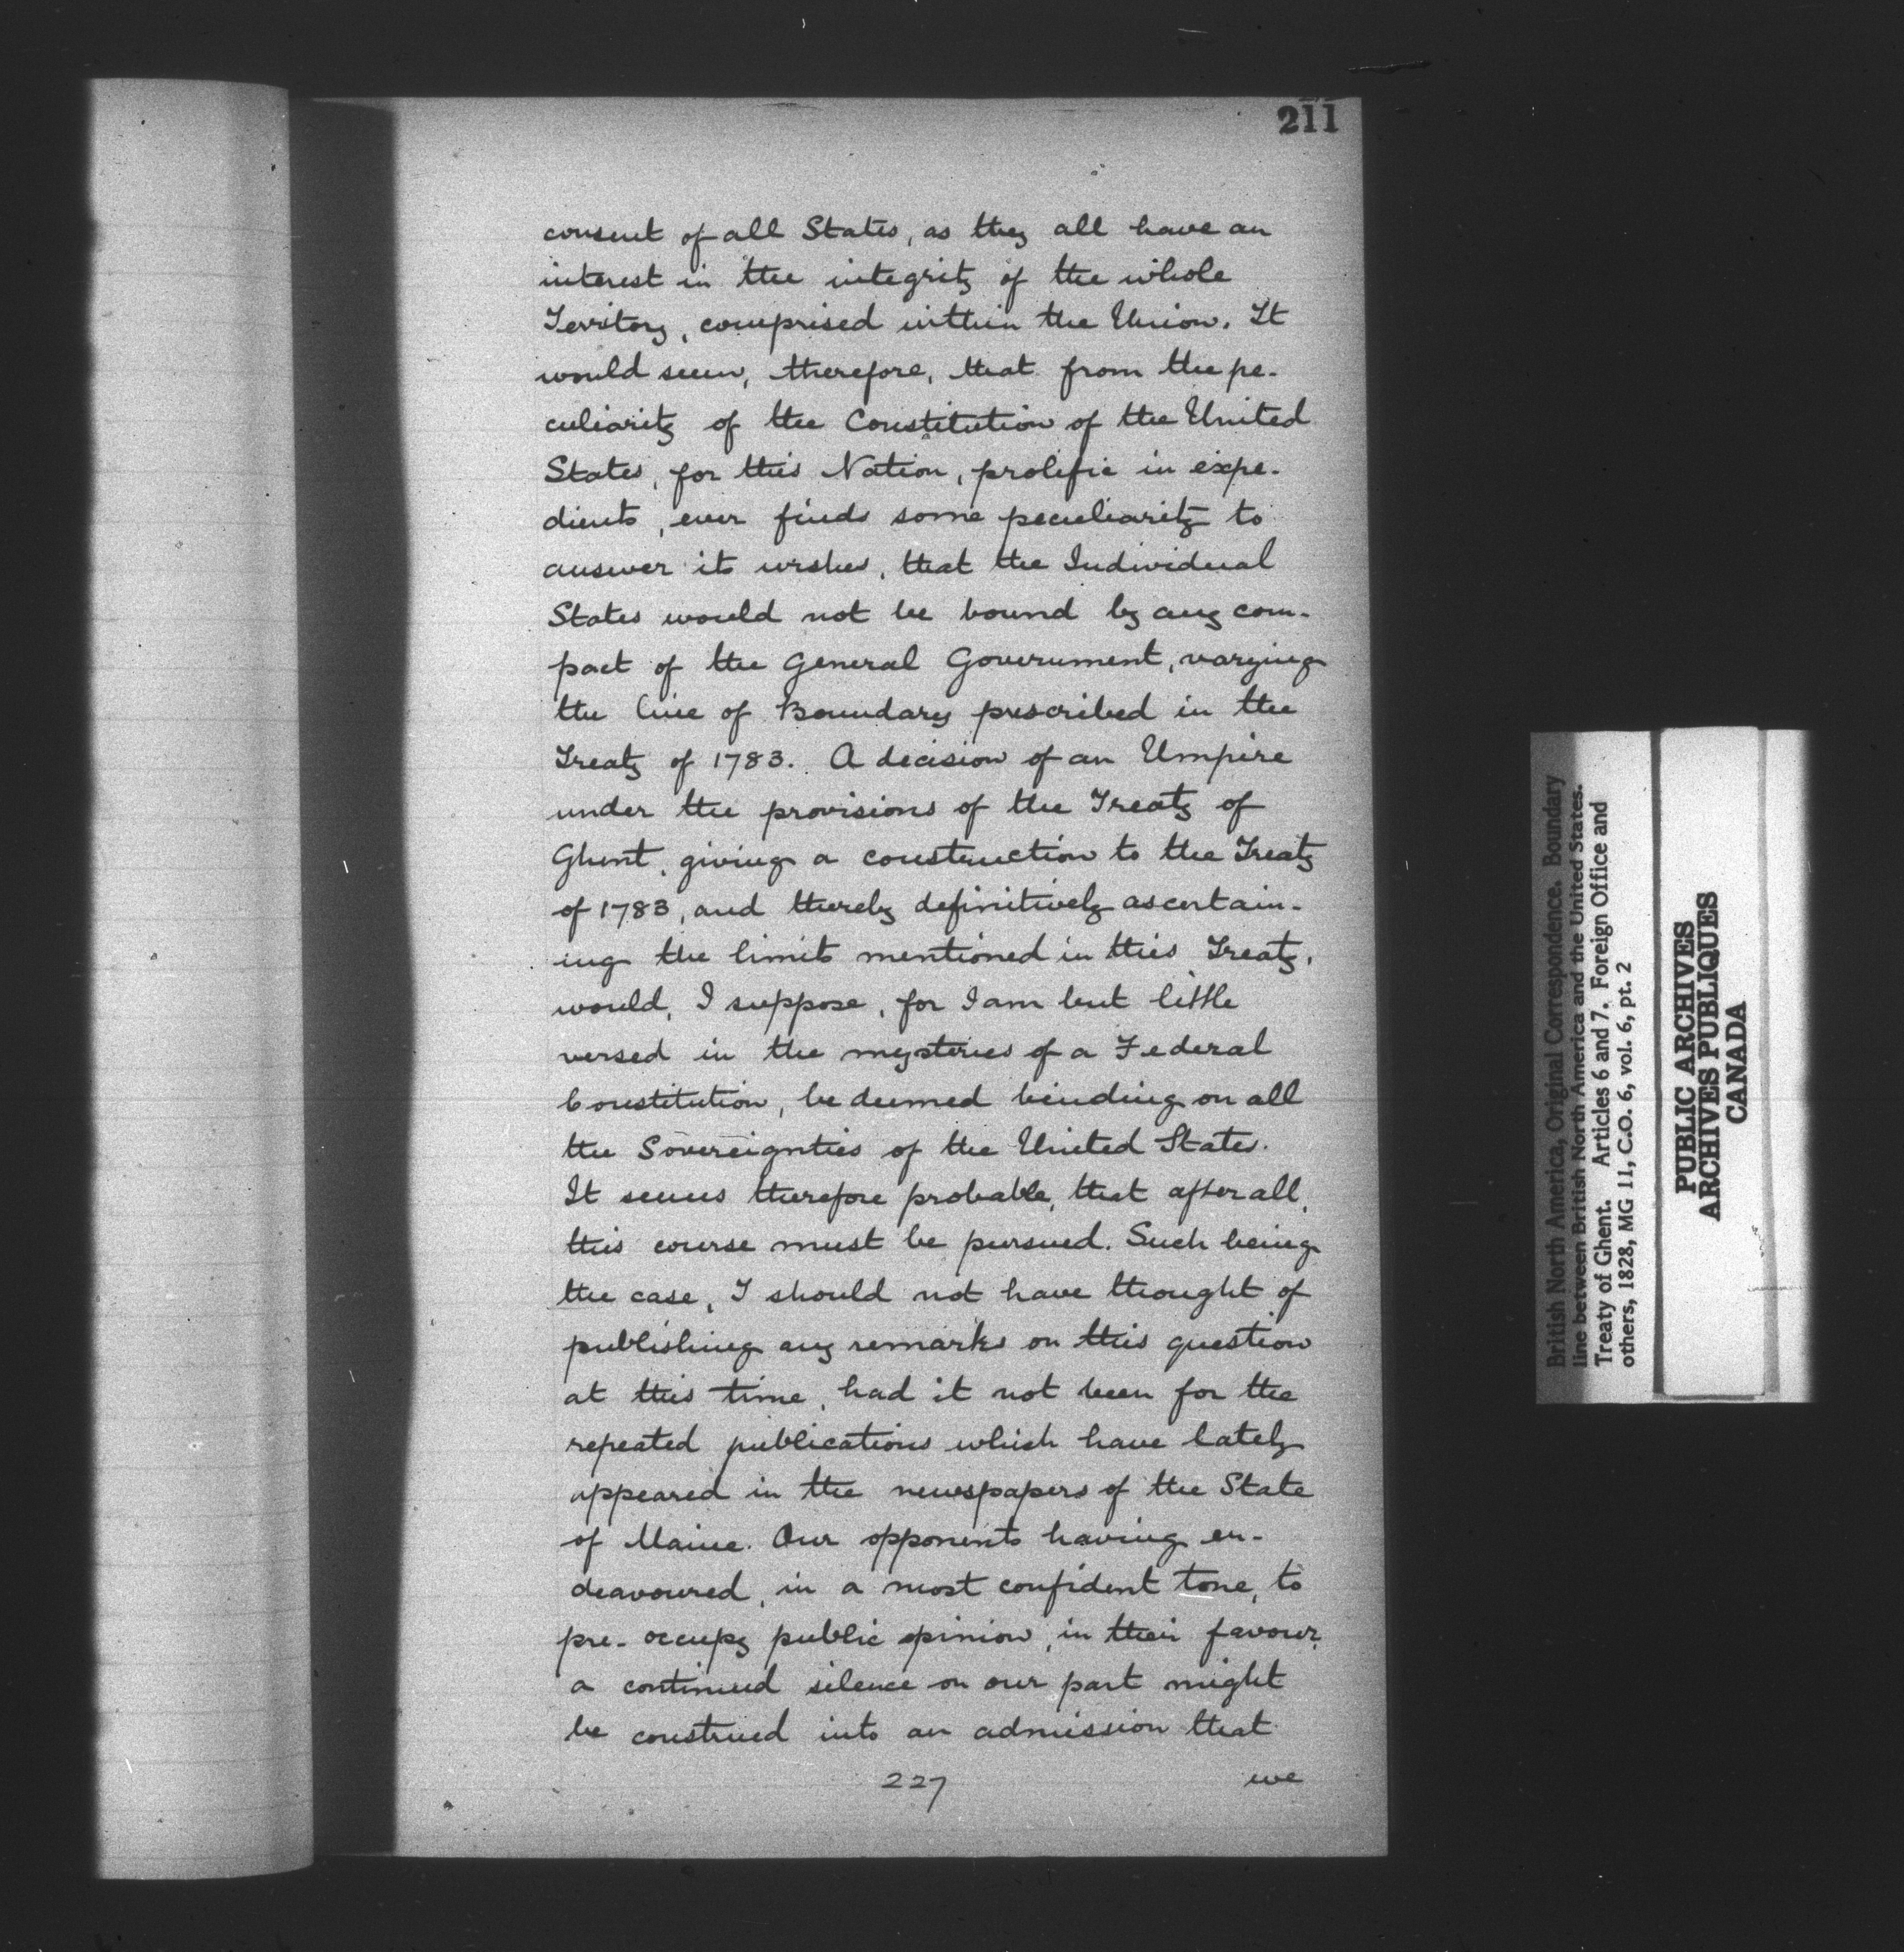 211
consent of all States, as they all have an
interest in the integrity of the whole
Territory, comprised within the Union. It
would seem, therefore, that from the pe-
culiarity of the Constitution of the United
States, for this Nation, prolific in expe-
dients, ever finds some peculiarity to
answer its wishes, that the Individual
States would not be bound by any com-
pact of the General Government, varying
the line of Boundary prescribed in the
Treaty of 1783. A decision of an Umpire
under the provisions of the Treaty of
Ghent, giving a construction to the Treaty
of 1783, and thereby definitively ascertain-
ing the limits mentioned in this Treaty,
would, I suppose, for I am but little
versed in the mysteries of a Federal
Constitution, be deemed binding on all
the Sovereignties of the United States.
It seems therefore probable, that after all,
this course must be pursued. Such being
the case, I should not have thought of
publishing any remarks on this question
at this time, had it not been for the
repeated publications which have lately
appeared in the newspapers of the State
of Maine. Our opponents having en-
deavoured, in a most confident tone, to
pre-occupy public opinion, in their favour,
a continued silence on our part might
be construed into an admission that
227 we
British North America, Original Correspondence. Boundary
line between British North America and the United States.
Treaty of Ghent. Articles 6 and 7. Foreign Office and
others, 1828, MG 11, C.O. 6, vol. 6, pt. 2
PUBLIC ARCHIVES
ARCHIVES PUBLIQUES
CANADA